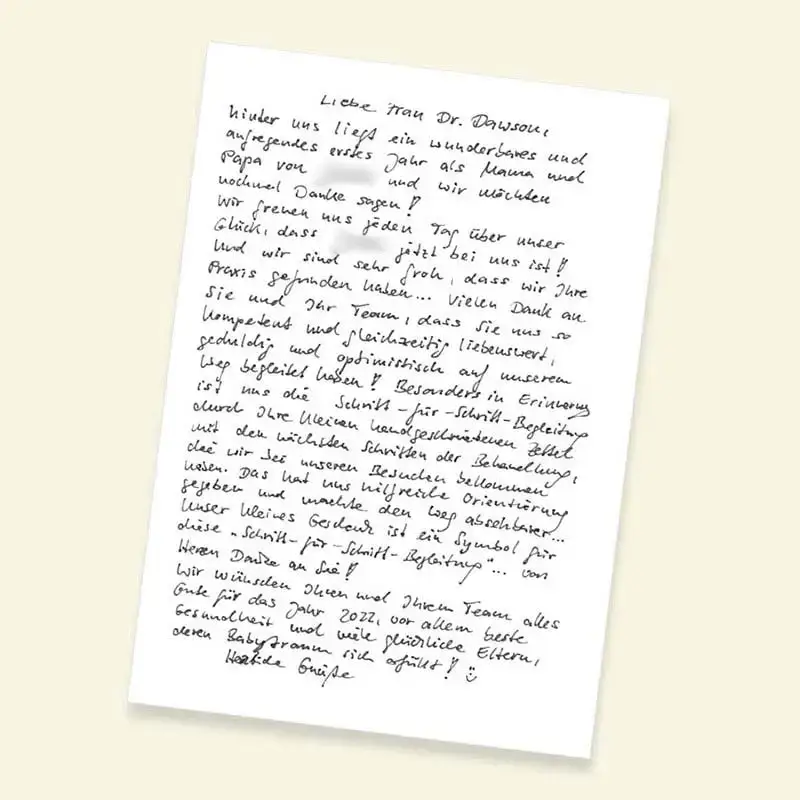 Liebe Frau Dr. Dawson,
hinter uns liegt ein wunderbares und
aufregendes erstes Jahr als Mama und
Papa von und wir möchten
nochmal Danke sagen!
Wir freuen uns jeden Tag über unser
Glück, dass jetzt bei uns ist!
Und wir sind sehr froh, dass wir Ihre
Praxis gefunden haben... Vielen Dank an
Sie und Ihr Team, dass Sie uns so
kompetent und gleichzeitig liebenswert,
geduldig und optimistisch auf unserem
Weg begleitet haben! Besonders in Erinnerung
ist uns die Schritt-für-Schritt-Begleitung
durch Ihre kleinen handgeschriebenen Zettel
mit den nächsten Schritten der Behandlung,
die wir bei unseren Besuchen bekommen
haben. Das hat uns hilfreiche Orientierung
gegeben und machte den Weg absehbarer...
Unser kleines Geschenk ist ein Symbol für
diese „Schritt-für-Schritt-Begleitung"... von
Herzen Danke an Sie!
Wir wünschen Ihnen und Ihrem Team alles
Gute für das Jahr 2022, vor allem beste
Gesundheit und viele glückliche Eltern,
deren Babytraum sich erfüllt!
Grüße